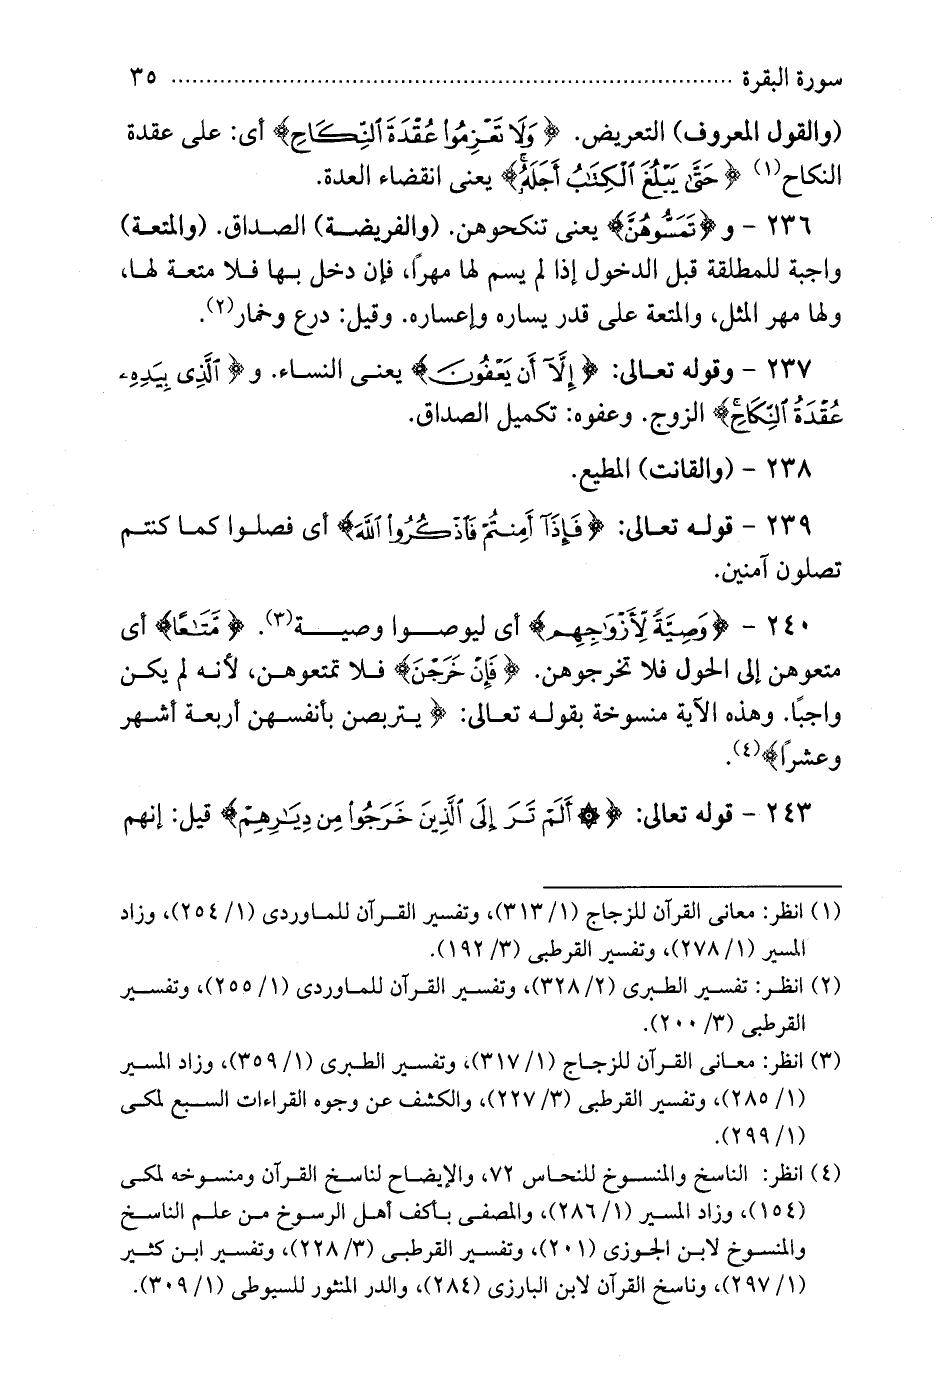 سورة البقرة ................................................................................ ٣٥
(والقول المعروف) التعريض. ﴿وَلَا تَعْزِمُوا۟ عُقْدَةَ ٱلنِّكَاحِ﴾ أى: على عقدة
النكاح(١) ﴿حَتَّىٰ يَبْلُغَ ٱلْكِتَٰبُ أَجَلَهُۥ﴾ يعنى انقضاء العدة.
٢٣٦ - و﴿تَمَسُّوهُنَّ﴾ يعنى تنكحوهن. (والفريضة) الصداق. (والمتعة)
واجبة للمطلقة قبل الدخول إذا لم يسم لها مهرًا، فإن دخل بها فلا متعة لها،
ولها مهر المثل، والمتعة على قدر يساره وإعساره. وقيل: درع وخمار(٢).
٢٣٧ - وقوله تعالى: ﴿إِلَّآ أَن يَعْفُونَ﴾ يعنى النساء. و﴿ٱلَّذِى بِيَدِهِۦ
عُقْدَةُ ٱلنِّكَاحِ﴾ الزوج. وعفوه: تكميل الصداق.
٢٣٨ - (والقانت) المطيع.
٢٣٩ - قوله تعالى: ﴿فَإِذَآ أَمِنتُمْ فَٱذْكُرُوا۟ ٱللَّهَ﴾ أى فصلوا كما كنتم
تصلون آمنين.
٢٤٠ - ﴿وَصِيَّةً لِّأَزْوَٰجِهِم﴾ أى ليوصوا وصية(٣). ﴿مَّتَٰعًا﴾ أى
متعوهن إلى الحول فلا تخرجوهن. ﴿فَإِنْ خَرَجْنَ﴾ فلا تمتعوهن، لأنه لم يكن
واجبًا. وهذه الآية منسوخة بقوله تعالى: ﴿يتربصن بأنفسهن أربعة أشهر
وعشرًا﴾(٤).
٢٤٣ - قوله تعالى: ﴿۞ أَلَمْ تَرَ إِلَى ٱلَّذِينَ خَرَجُوا۟ مِن دِيَٰرِهِمْ﴾ قيل: إنهم
(١) انظر: معانى القرآن للزجاج (١/ ٣١٣)، وتفسير القرآن للماوردى (١/ ٢٥٤)، وزاد
المسير (١/ ٢٧٨)، وتفسير القرطبى (٣/ ١٩٢).
(٢) انظر: تفسير الطبرى (٢/ ٣٢٨)، وتفسير القرآن للماوردى (١/ ٢٥٥)، وتفسير
القرطبى (٣/ ٢٠٠).
(٣) انظر: معانى القرآن للزجاج (١/ ٣١٧)، وتفسير الطبرى (١/ ٣٥٩)، وزاد المسير
(١/ ٢٨٥)، وتفسير القرطبى (٣/ ٢٢٧)، والكشف عن وجوه القراءات السبع لمكى
(١/ ٢٩٩).
(٤) انظر: الناسخ والمنسوخ للنحاس ٧٢، والإيضاح لناسخ القرآن ومنسوخه لمكى
(١٥٤)، وزاد المسير (١/ ٢٨٦)، والمصفى بأكف أهل الرسوخ من علم الناسخ
والمنسوخ لابن الجوزى (٢٠١)، وتفسير القرطبى (٣/ ٢٢٨)، وتفسير ابن كثير
(١/ ٢٩٧)، وناسخ القرآن لابن البارزى (٢٨٤)، والدر المنثور للسيوطى (١/ ٣٠٩).